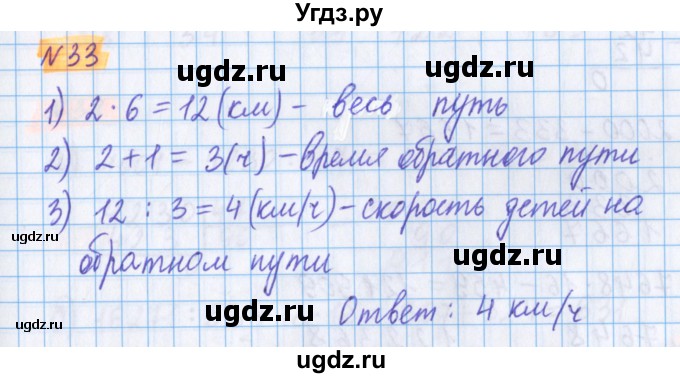 Угдз.ру
№33
ugdz.ru ugdz.ru
1) 2·6=12(км) - весь путь
ugdz.ru
2) 2+1=3(ч) - время обратного пути
3) 12:3=4(км/ч) - скорость детей на
ugdz.ru ugdz.ru
обратном пути
ugdz.ru ugdz.ru
Ответ: 4 км/ч
ugdz.ru